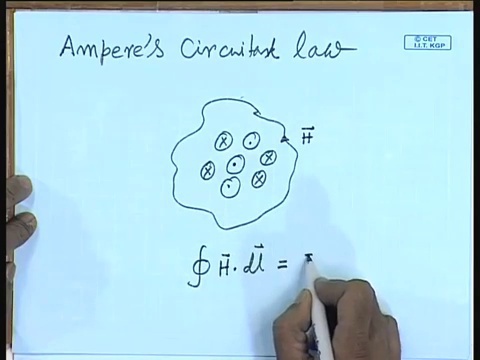 Ampere's Circuital law
© CET
I.I.T. KGP
x
x x
x
H⃗
∮ H⃗ · dl⃗ =